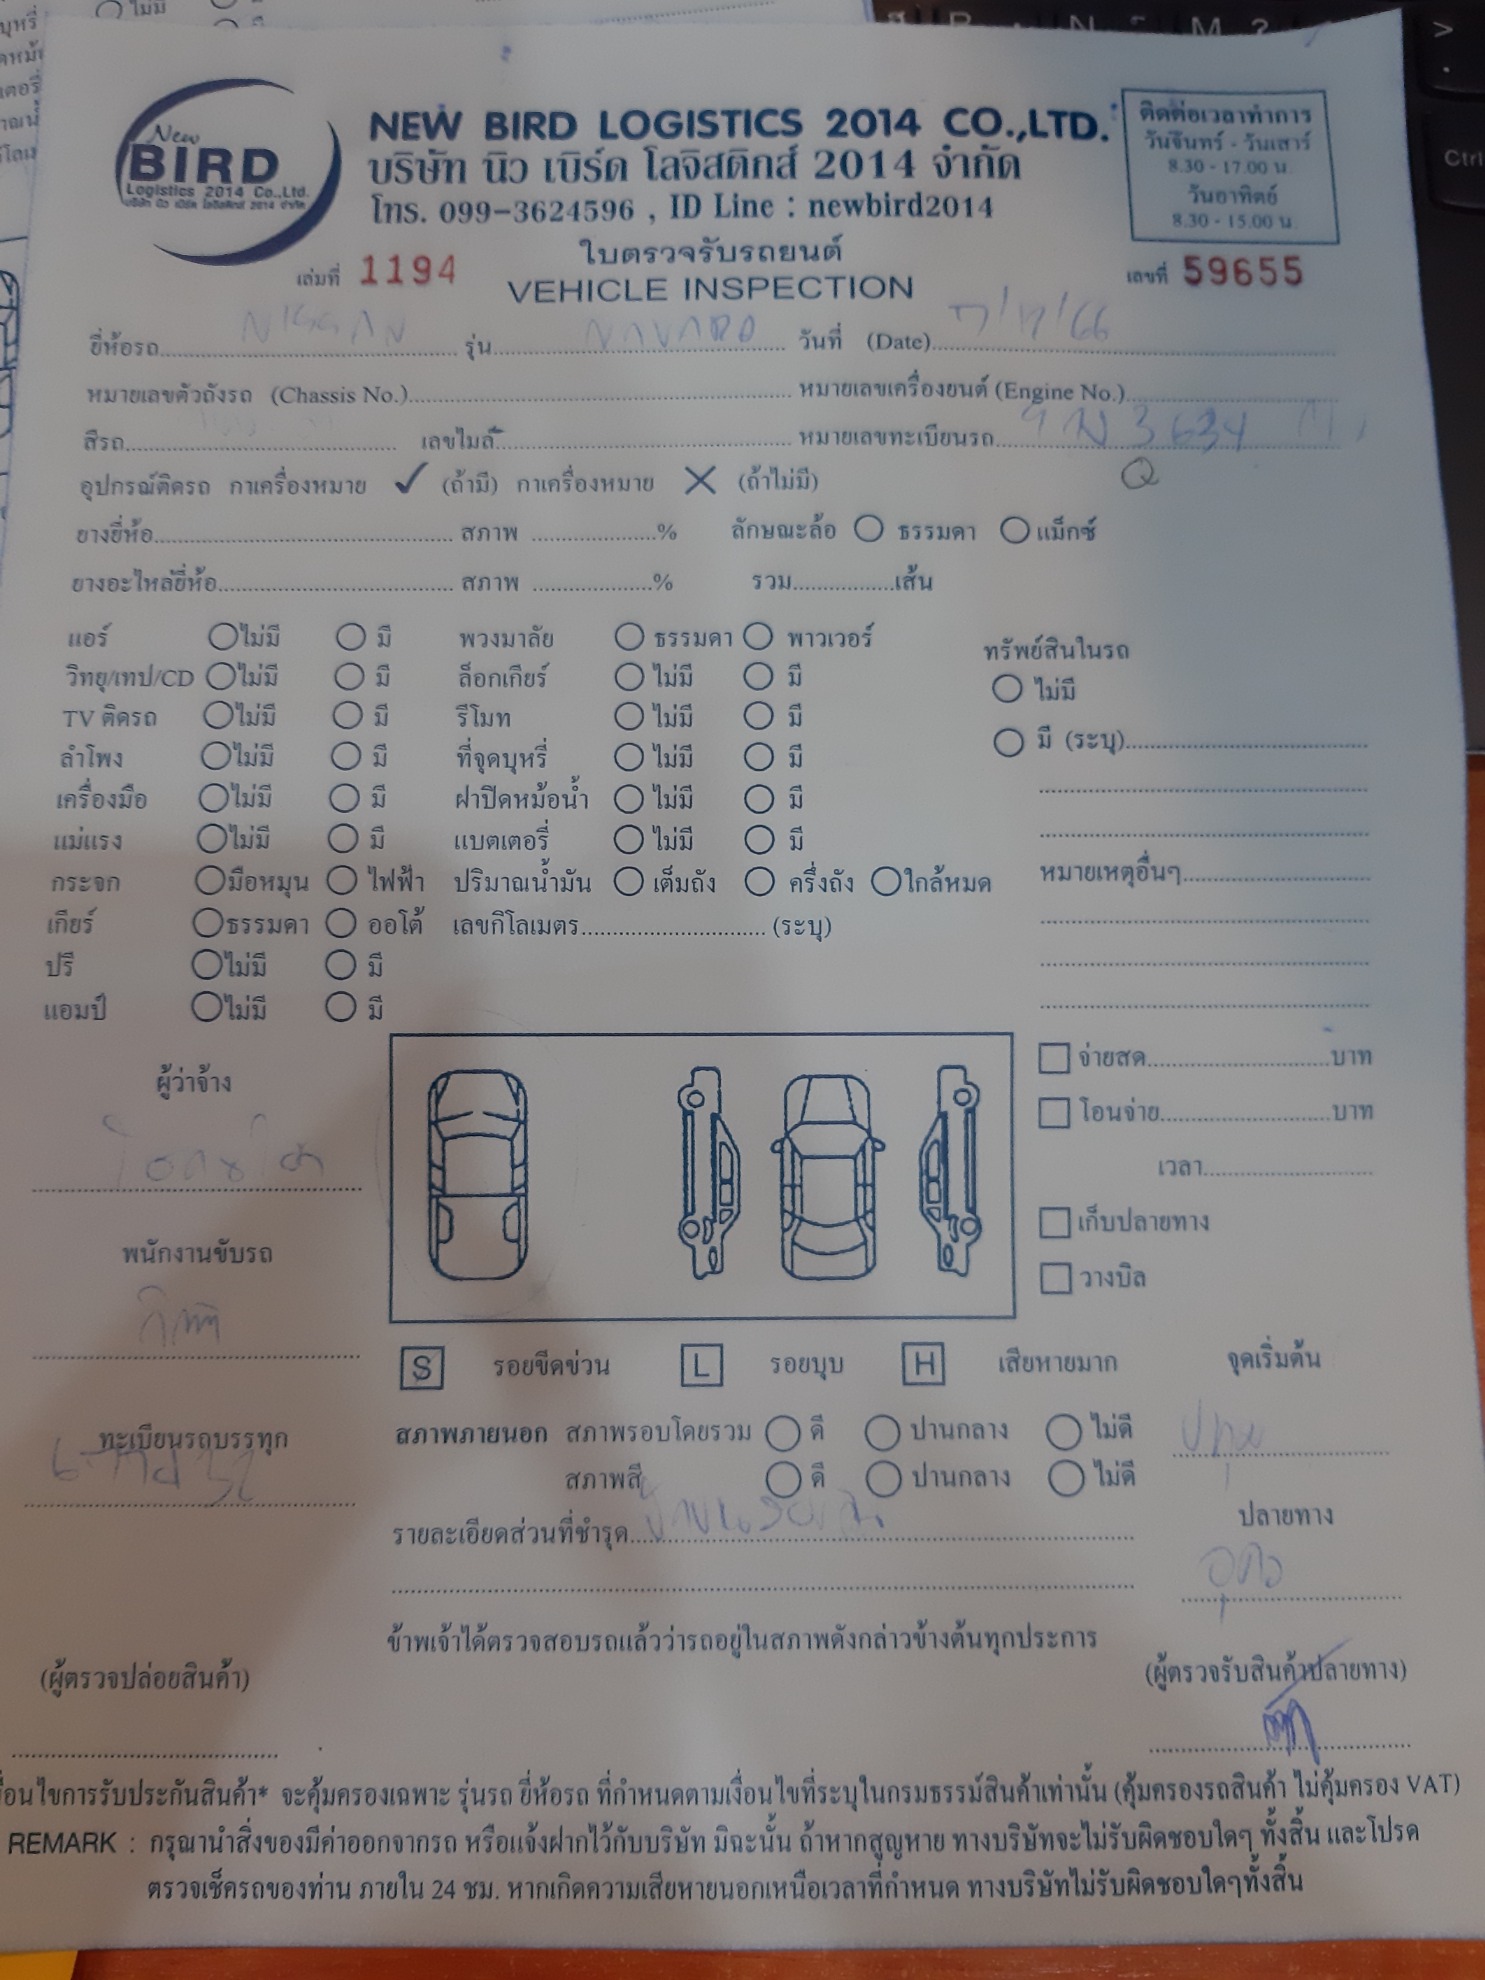 New
BIRD
Logistics 2014 Co.,Ltd.
บริษัท นิว เบิร์ด โลจิสติกส์ 2014 จำกัด
NEW BIRD LOGISTICS 2014 CO.,LTD.
บริษัท นิว เบิร์ด โลจิสติกส์ 2014 จำกัด
โทร. 099-3624596 , ID Line : newbird2014
ติดต่อเวลาทำการ
วันจันทร์ - วันเสาร์
8.30 - 17.00 น.
วันอาทิตย์
8.30 - 15.00 น.
ใบตรวจรับรถยนต์
เล่มที่ 1194 VEHICLE INSPECTION เลขที่ 59655
ยี่ห้อรถ NISSAN รุ่น NAVARA วันที่ (Date)
หมายเลขตัวถังรถ (Chassis No.) หมายเลขเครื่องยนต์ (Engine No.)
สีรถ เลขไมล์ หมายเลขทะเบียนรถ 3634
อุปกรณ์ติดรถ กาเครื่องหมาย ✓ (ถ้ามี) กาเครื่องหมาย ✕ (ถ้าไม่มี)
ยางยี่ห้อ สภาพ % ลักษณะล้อ ธรรมดา แม็กซ์
ยางอะไหล่ยี่ห้อ สภาพ % รวม เส้น
แอร์ ไม่มี มี พวงมาลัย ธรรมดา พาวเวอร์
วิทยุ/เทป/CD ไม่มี มี ล็อกเกียร์ ไม่มี มี
TV ติดรถ ไม่มี มี รีโมท ไม่มี มี
ลำโพง ไม่มี มี ที่จุดบุหรี่ ไม่มี มี
เครื่องมือ ไม่มี มี ฝาปิดหม้อน้ำ ไม่มี มี
แม่แรง ไม่มี มี แบตเตอรี่ ไม่มี มี
กระจก มือหมุน ไฟฟ้า ปริมาณน้ำมัน เต็มถัง ครึ่งถัง ใกล้หมด
เกียร์ ธรรมดา ออโต้ เลขกิโลเมตร (ระบุ)
ปรี ไม่มี มี
แอมป์ ไม่มี มี
ทรัพย์สินในรถ
ไม่มี
มี (ระบุ)
หมายเหตุอื่นๆ
จ่ายสด บาท
โอนจ่าย บาท
เวลา
เก็บปลายทาง
วางบิล
ผู้ว่าจ้าง
พนักงานขับรถ
ทะเบียนรถบรรทุก
S รอยขีดข่วน L รอยบุบ H เสียหายมาก
จุดเริ่มต้น
สภาพภายนอก สภาพรอบโดยรวม ดี ปานกลาง ไม่ดี
สภาพสี ดี ปานกลาง ไม่ดี
รายละเอียดส่วนที่ชำรุด
ปลายทาง
ข้าพเจ้าได้ตรวจสอบรถแล้วว่ารถอยู่ในสภาพดังกล่าวข้างต้นทุกประการ
(ผู้ตรวจปล่อยสินค้า) (ผู้ตรวจรับสินค้าปลายทาง)
งื่อนไขการรับประกันสินค้า* จะคุ้มครองเฉพาะ รุ่นรถ ยี่ห้อรถ ที่กำหนดตามเงื่อนไขที่ระบุในกรมธรรม์สินค้าเท่านั้น (คุ้มครองรถสินค้า ไม่คุ้มครอง VAT)
REMARK : กรุณานำสิ่งของมีค่าออกจากรถ หรือแจ้งฝากไว้กับบริษัท มิฉะนั้น ถ้าหากสูญหาย ทางบริษัทจะไม่รับผิดชอบใดๆ ทั้งสิ้น และโปรด
ตรวจเช็ครถของท่าน ภายใน 24 ชม. หากเกิดความเสียหายนอกเหนือเวลาที่กำหนด ทางบริษัทไม่รับผิดชอบใดๆทั้งสิ้น